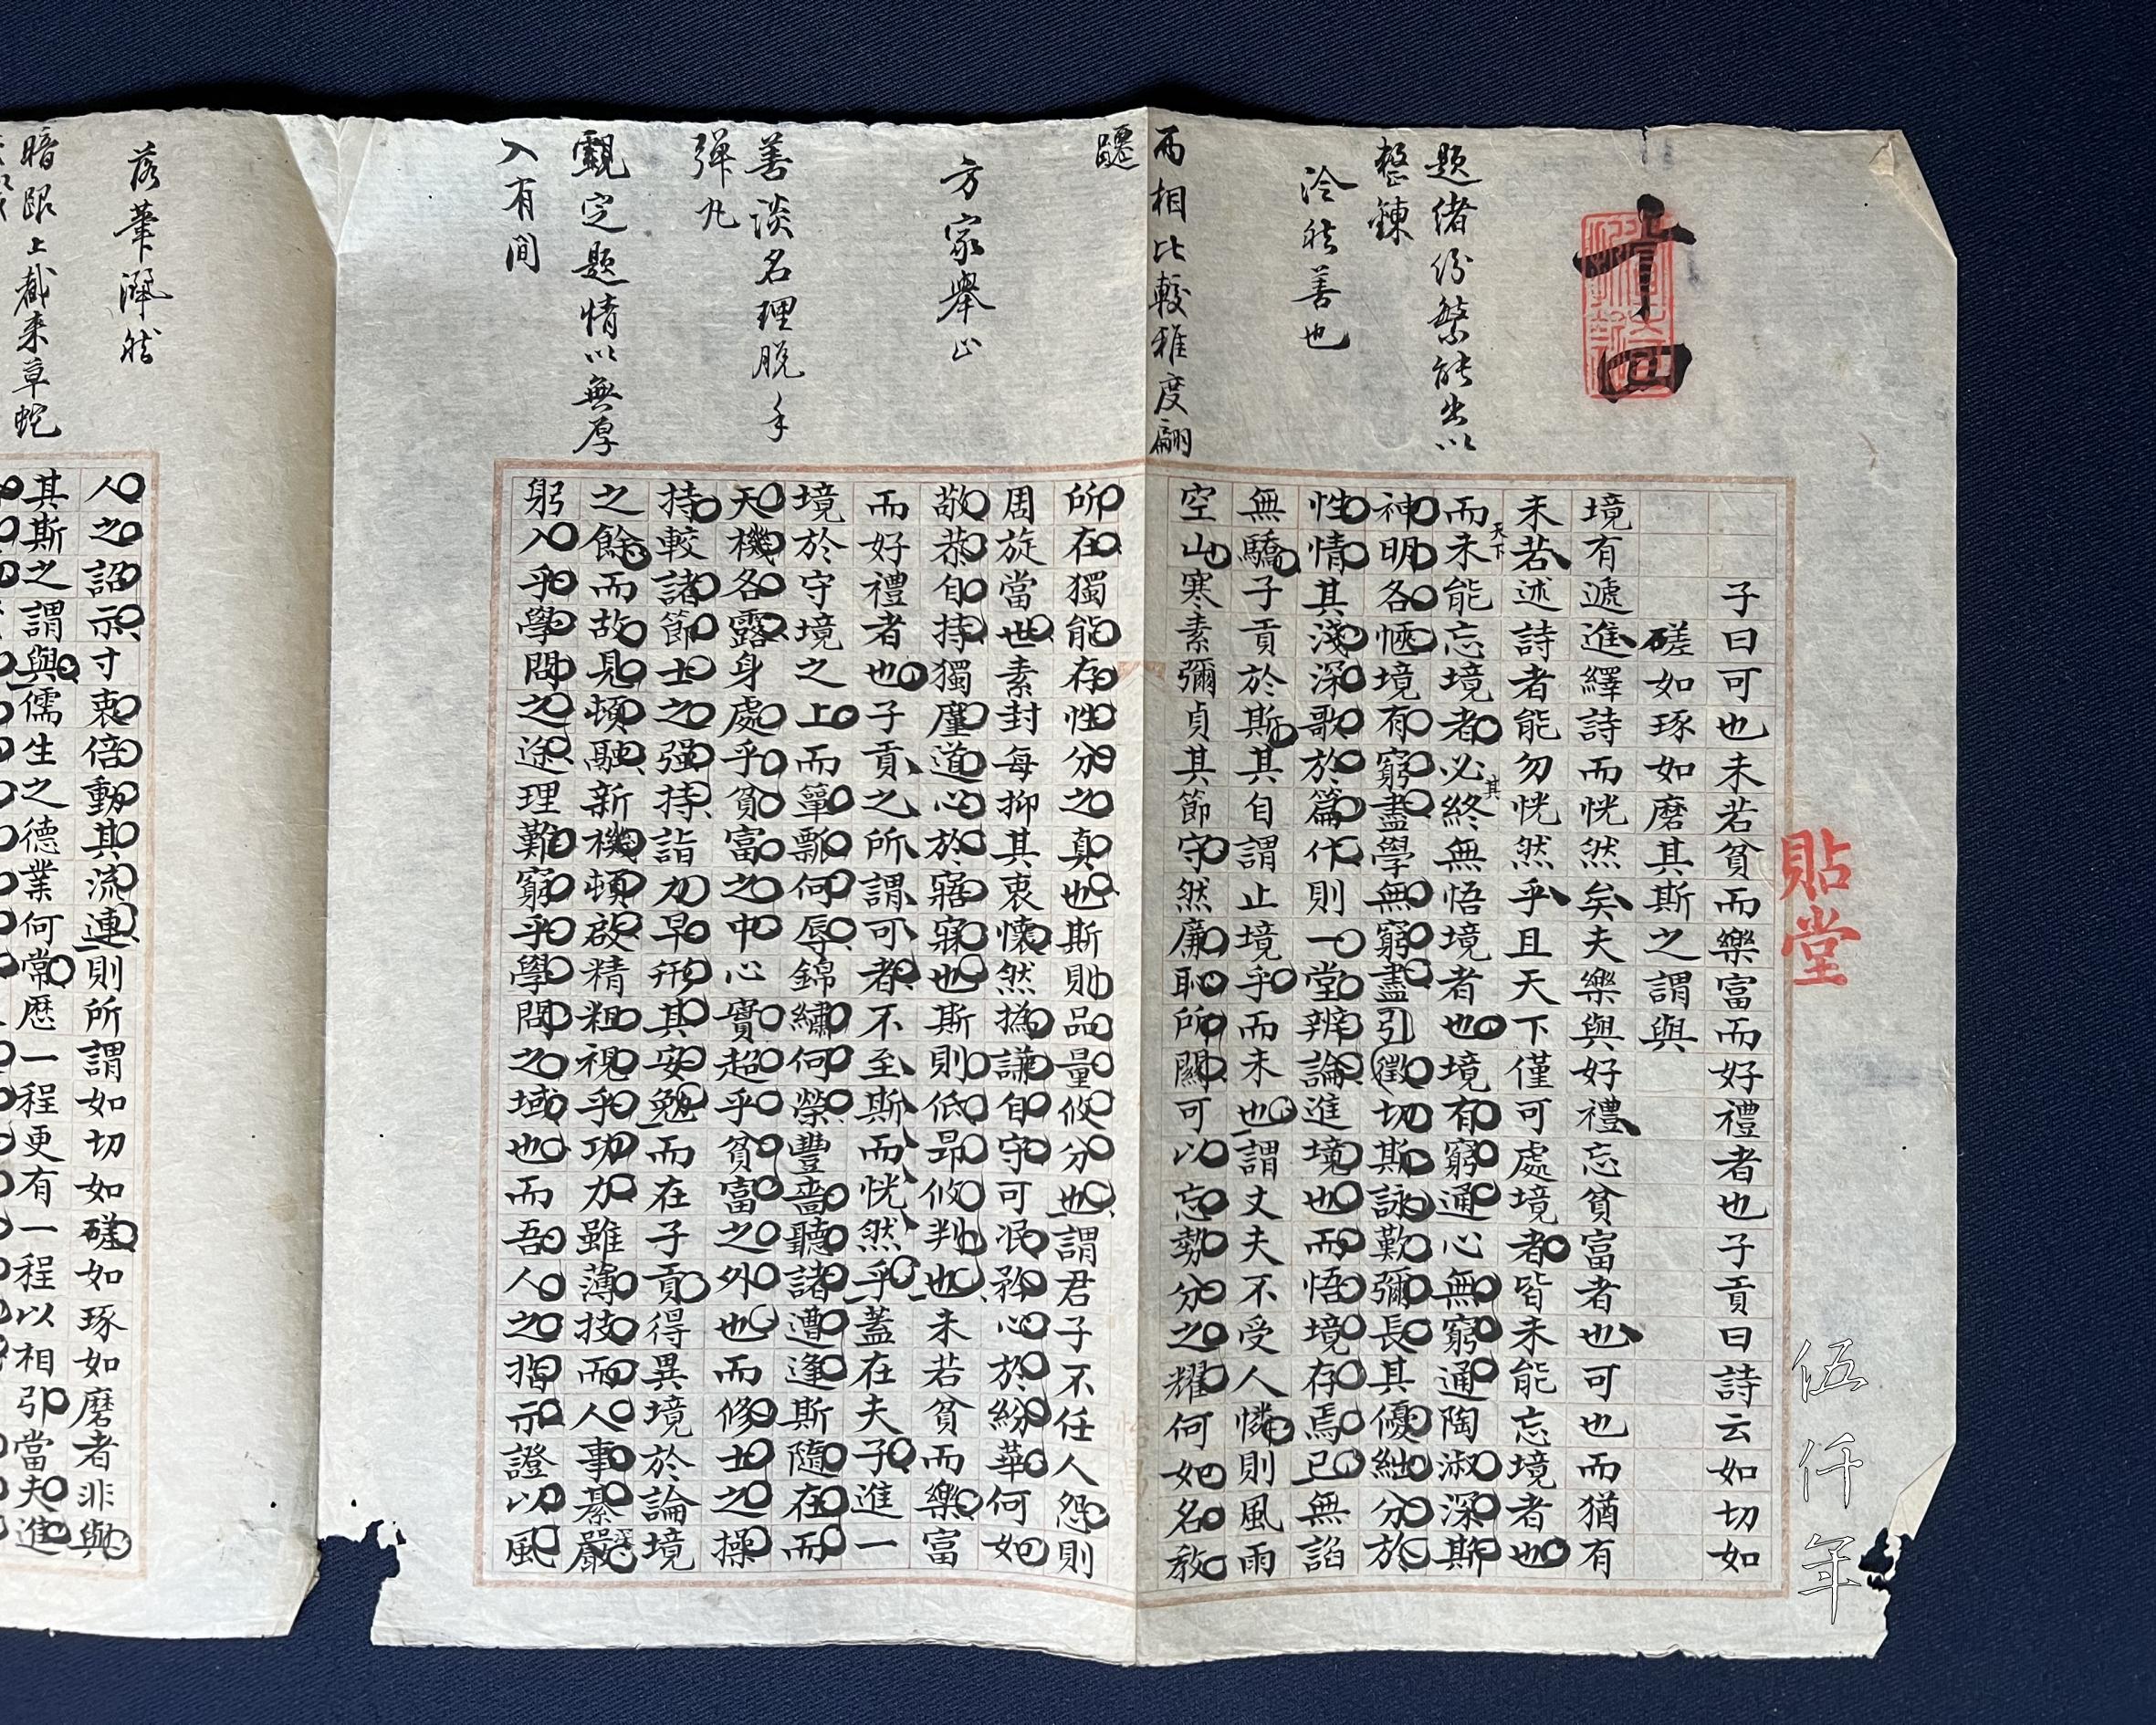 十四
題緒紛繁能出以
整鍊
泠然善也
兩相比較雅度翩
躚
方家舉止
善談名理脫手
彈丸
覷定題情以無厚
入有間
貼堂
子曰可也未若貧而樂富而好禮者也子貢曰詩云如切如
磋如琢如磨其斯之謂與
境有遞進繹詩而恍然矣夫樂與好禮忘貧富者也可也而猶有
未若述詩者能勿恍然乎且天下僅可處境者皆未能忘境者也
而天下未能忘境者必其終無悟境者也境有窮通心無窮通陶淑深斯
神明各愜境有窮盡學無窮盡引徵切斯詠歎彌長其優絀分於
性情其淺深歌於篇什則一堂辨論進境也而悟境存焉已無諂
無驕子貢於斯其自謂止境乎而未也謂丈夫不受人憐則風雨
空山寒素彌貞其節守然廉恥所關可以忘勢分之耀何如名教
所在獨能存性分之真也斯則品量攸分也謂君子不任人怨則
周旋當世素封每抑其衷懷然撝謙自守可泯矜心於紛華何如
敬恭自持獨廑道心於寤寐也斯則低昂攸判也未若貧而樂富
而好禮者也子貢之所謂可者不至斯而恍然乎蓋在夫子進一
境於守境之上而簞瓢何辱錦繡何榮豐嗇聽諸遭逢斯隨在而
天機各露身處乎貧富之中心實超乎貧富之外也而修士之操
持較諸節士之强持詣力早殊其安勉而在子貢得異境於論境
之餘而故見頓融新機頓啟精粗視乎功力雖薄技而人事綦嚴
躬入乎學問之途理難窮乎學問之域也而吾人之指示證以風
落筆渾然
暗跟上截來草蛇
人之詔示寸衷倍動其流連則所謂如切如磋如琢如磨者非與
其斯之謂與儒生之德業何常歷一程更有一程以相引當夫進
伍仟年